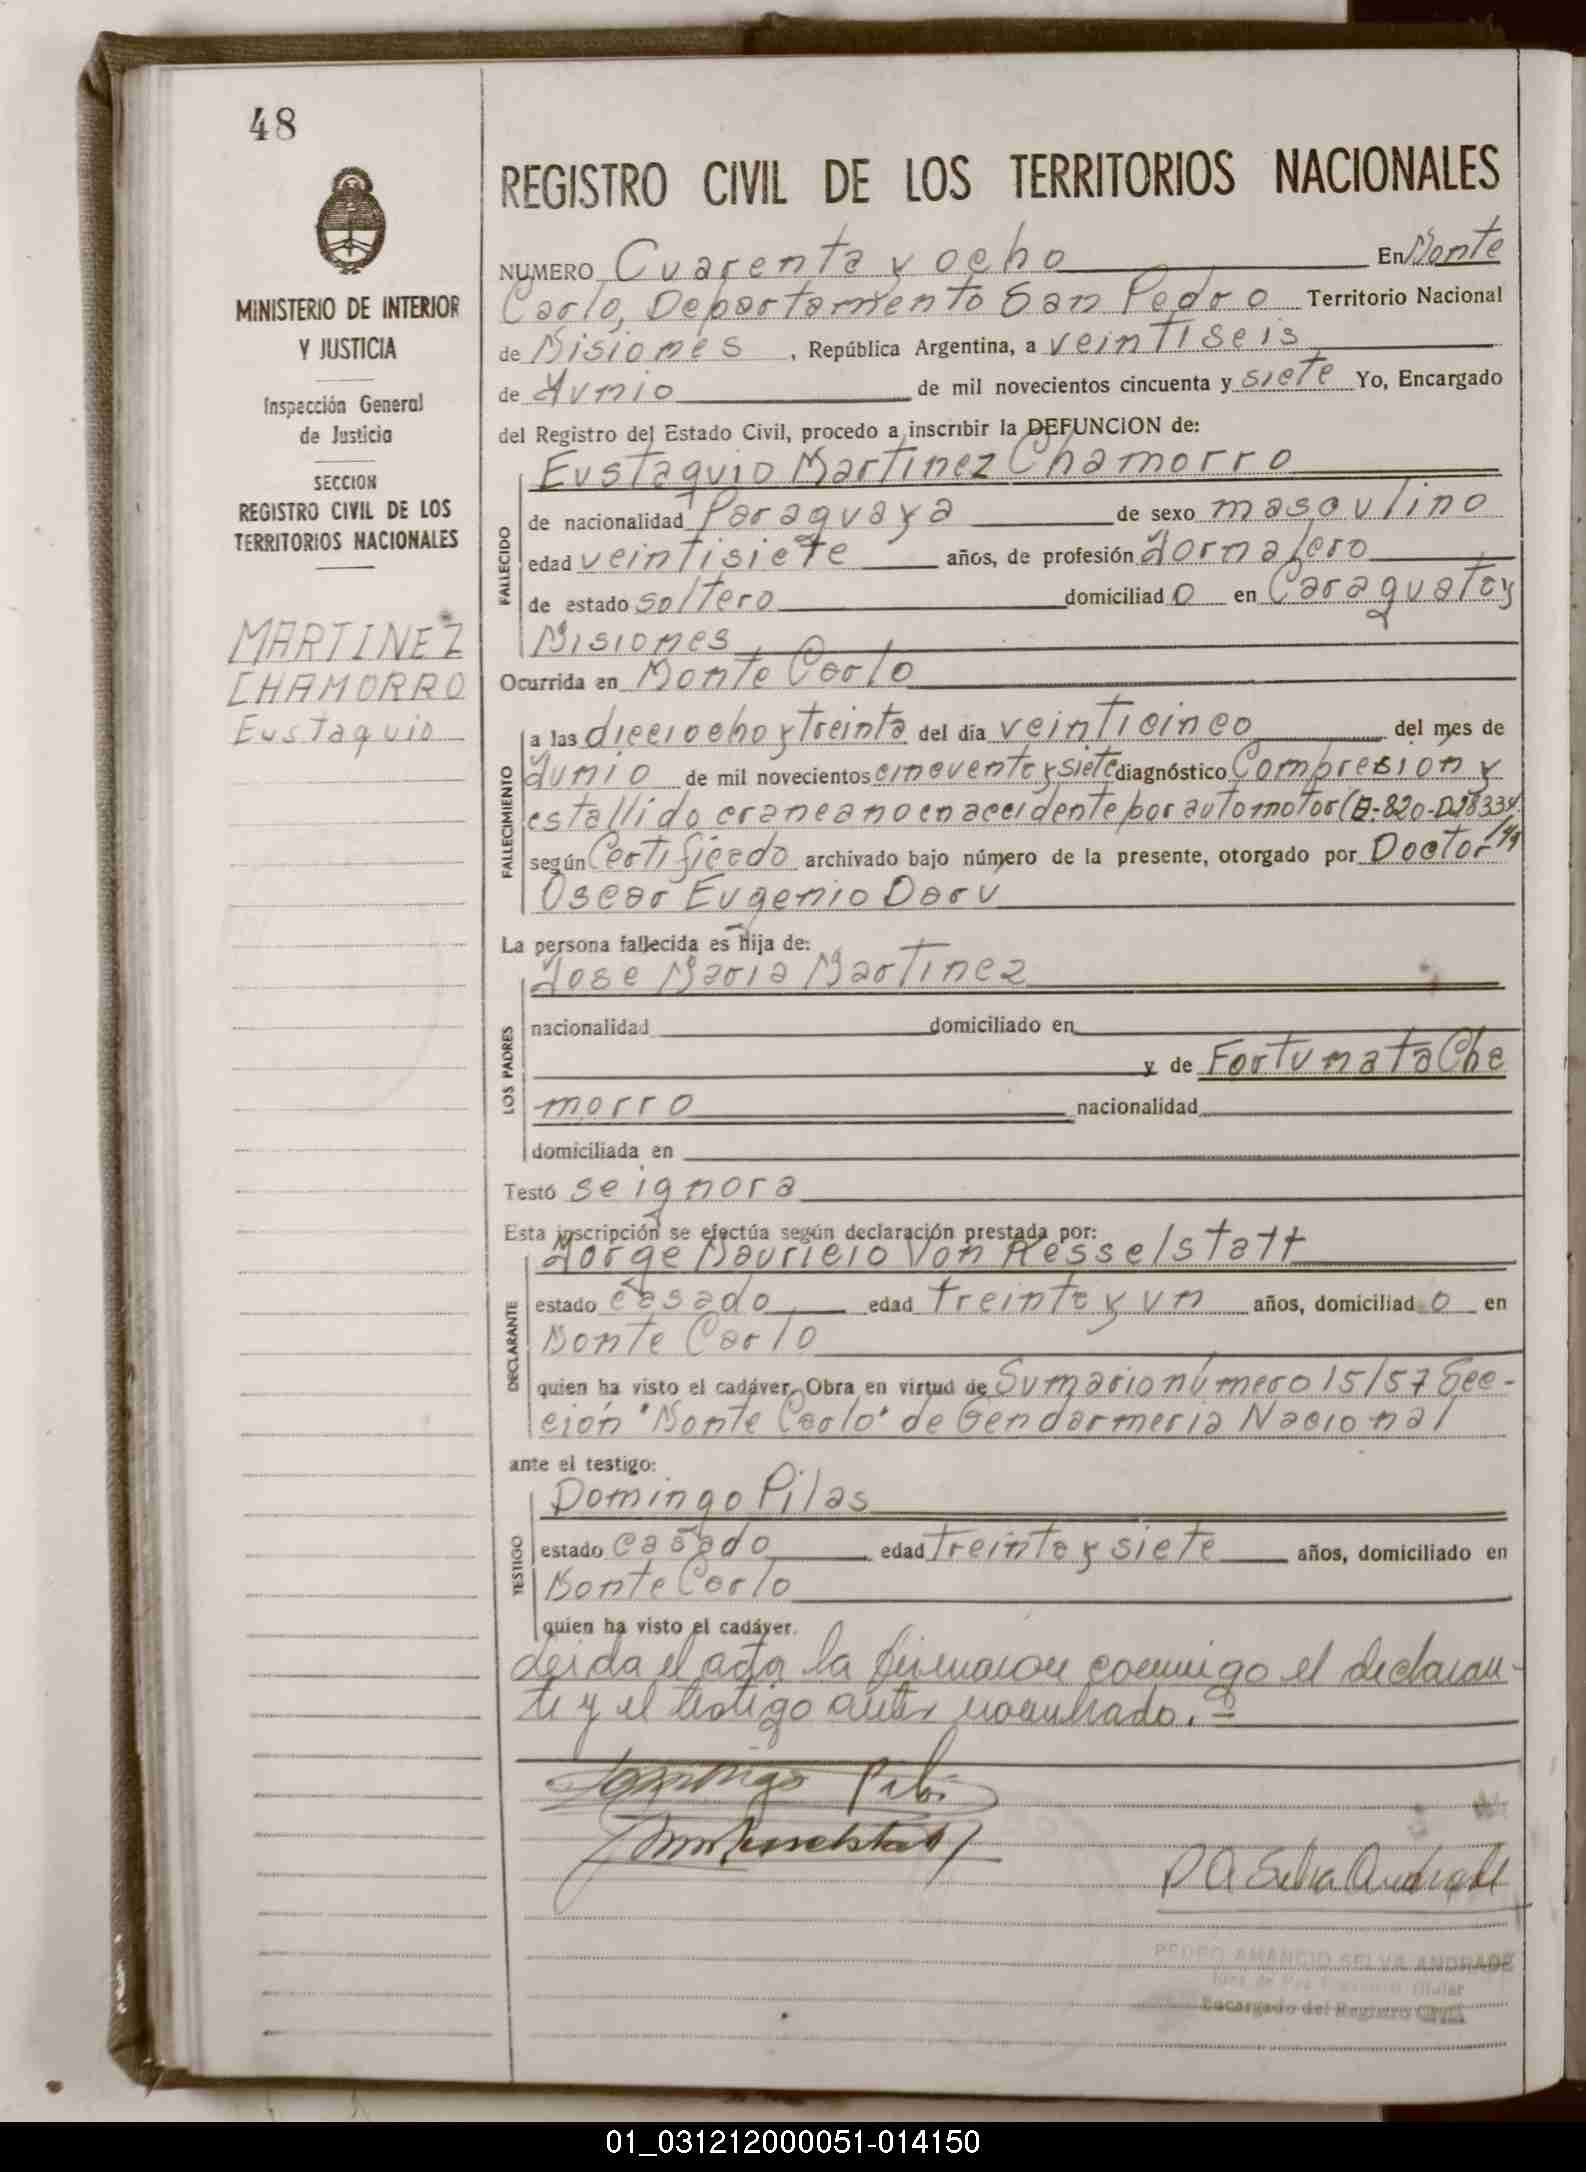 48
MINISTERIO DE INTERIOR
Y JUSTICIA
Inspección General
de Justicia
SECCION
REGISTRO CIVIL DE LOS
TERRITORIOS NACIONALES
MARTINEZ
CHAMORRO
Eustaquio
REGISTRO CIVIL DE LOS TERRITORIOS NACIONALES
NUMERO Cuarenta y ocho En Monte
Carlo, Departamento San Pedro Territorio Nacional
de Misiones, República Argentina, a veintiseis
de Junio de mil novecientos cincuenta y siete Yo, Encargado
del Registro del Estado Civil, procedo a inscribir la DEFUNCION de:
FALLECIDO
Eustaquio Martinez Chamorro
de nacionalidad Paraguaya de sexo masculino
edad veintisiete años, de profesión Jornalero
de estado soltero domiciliado en Caraguatay
Misiones
Ocurrida en Monte Carlo
FALLECIMIENTO
a las dieciocho y treinta del día veinticinco del mes de
Junio de mil novecientos cincuenta y siete diagnóstico Compresion y
estallido craneano en accidente por automotor
según Certificado archivado bajo número de la presente, otorgado por Doctor
Oscar Eugenio Daru
La persona fallecida es hija de:
LOS PADRES
Jose Maria Martinez
nacionalidad domiciliado en
y de Fortunata Cha
morro nacionalidad
domiciliada en
Testó se ignora
Esta inscripción se efectúa según declaración prestada por:
DECLARANTE
Jorge Mauricio Von Resselstatt
estado casado edad treinta y un años, domiciliado en
Monte Carlo
quien ha visto el cadáver. Obra en virtud de Sumario número 15/57 Sec-
ción "Monte Carlo" de Gendarmeria Nacional
ante el testigo:
TESTIGO
Domingo Pilas
estado casado edad treinta y siete años, domiciliado en
Monte Carlo
quien ha visto el cadáver.
Leida el acta la firmaron conmigo el declaran-
te y el testigo antes nombrado.
Domingo Pilas
P A Selva Andrade
PEDRO AMANCIO SELVA ANDRADE
Encargado del Registro Civil
01_031212000051-014150